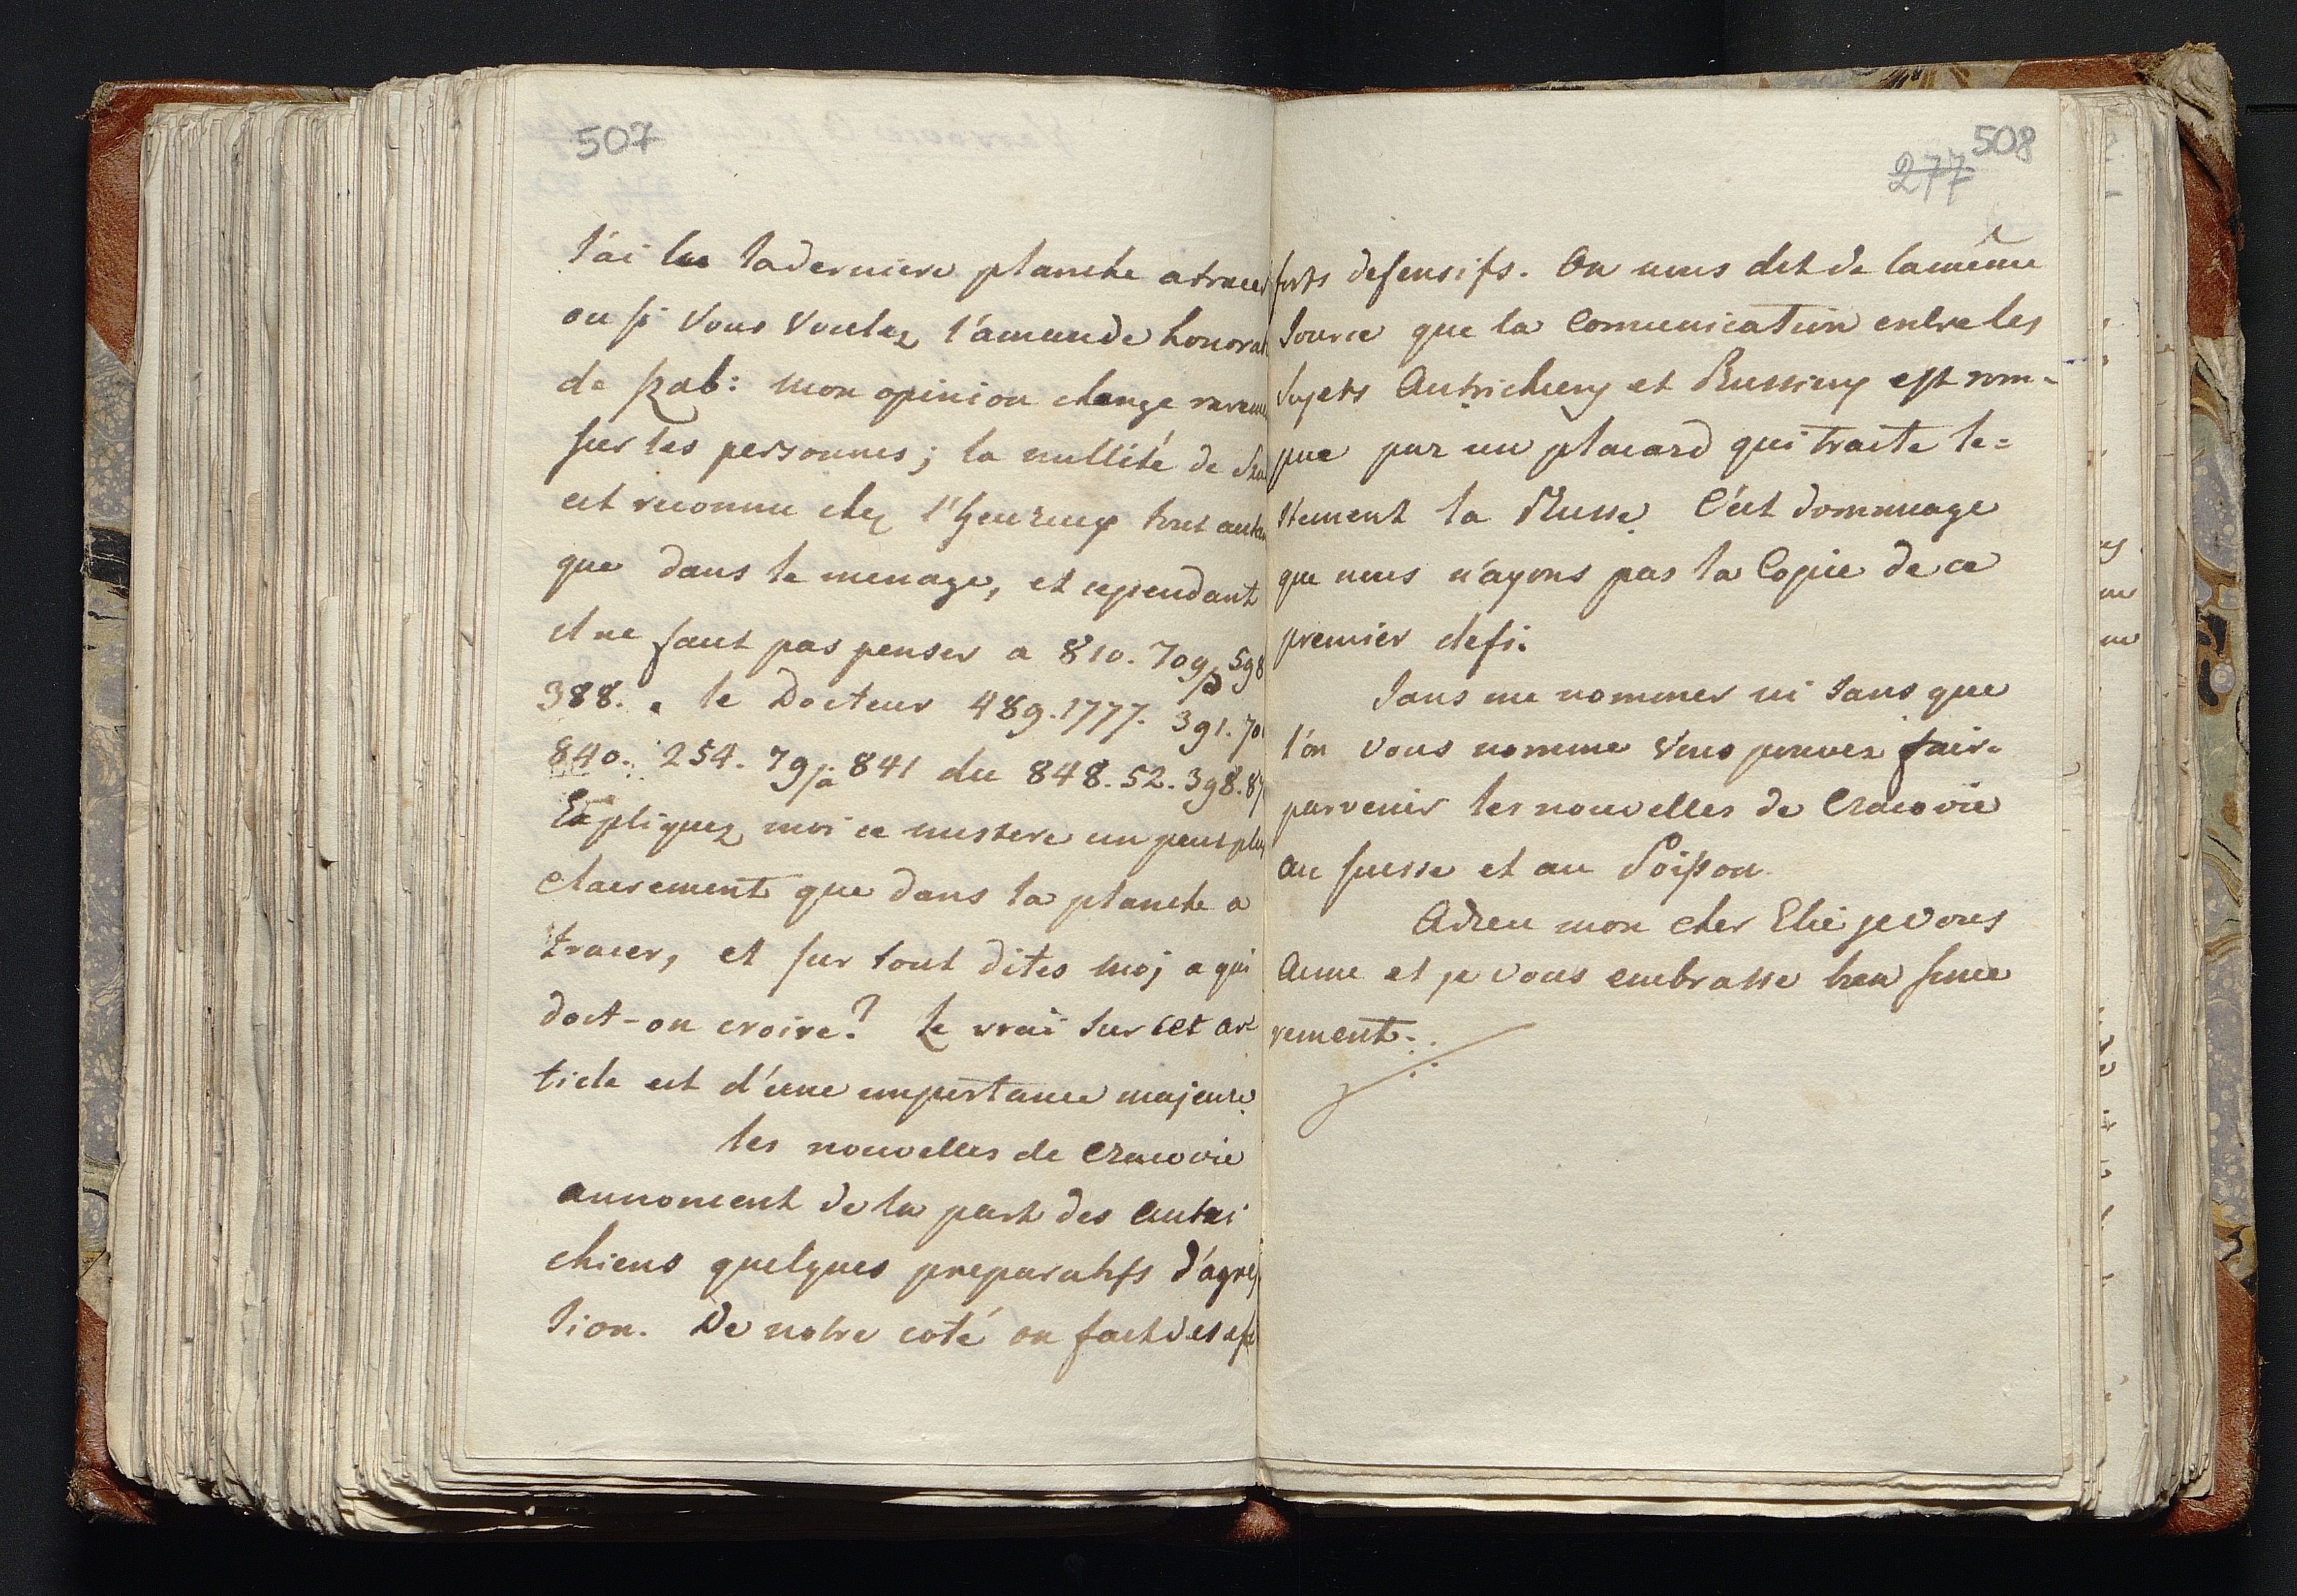 507
J'ai lu la derniere planche a tracer
ou si vous voulez l'amande honora
de Rab: mon opinion change rareme
sur les personnes; la nullité de
est reconnu chez l'heureux tout auta
que dans le menage, et cependant
il ne faut pas penser a 810. 709/a 598
388. . le Docteur 489. 1777. 391. 70
840. 254. 79/a 841 du 848. 52. 398. 87
Expliquez moi ce mistere un peut plus
clairement que dans la planche a
tracer, et sur tout dites moj a qui
doit-on croire? Le vrai sur cet ar
ticle est d'une importance majeure.
les nouvelles de Cracovie
annoncent de la part des Autri
chiens quelques preparatifs d'agres
sion. De notre coté on fait des ef
508
277
forts defensifs. On nous dit de la même
source que la Comunication entre les
sujets Autrichiens et Russiens est rom-
pue par un placard qui traite le=
stement la Russe. C'est dommage
que nous n'ayons pas la Copie de ce
premier defi.
Sans me nommer ni sans que
l'on vous nomme vous pouvez faire
parvenir les nouvelles de Cracovie
au suisse et au Poisson.
Adieu mon cher Elie je vous
aime et je vous embrasse bien since
rement.